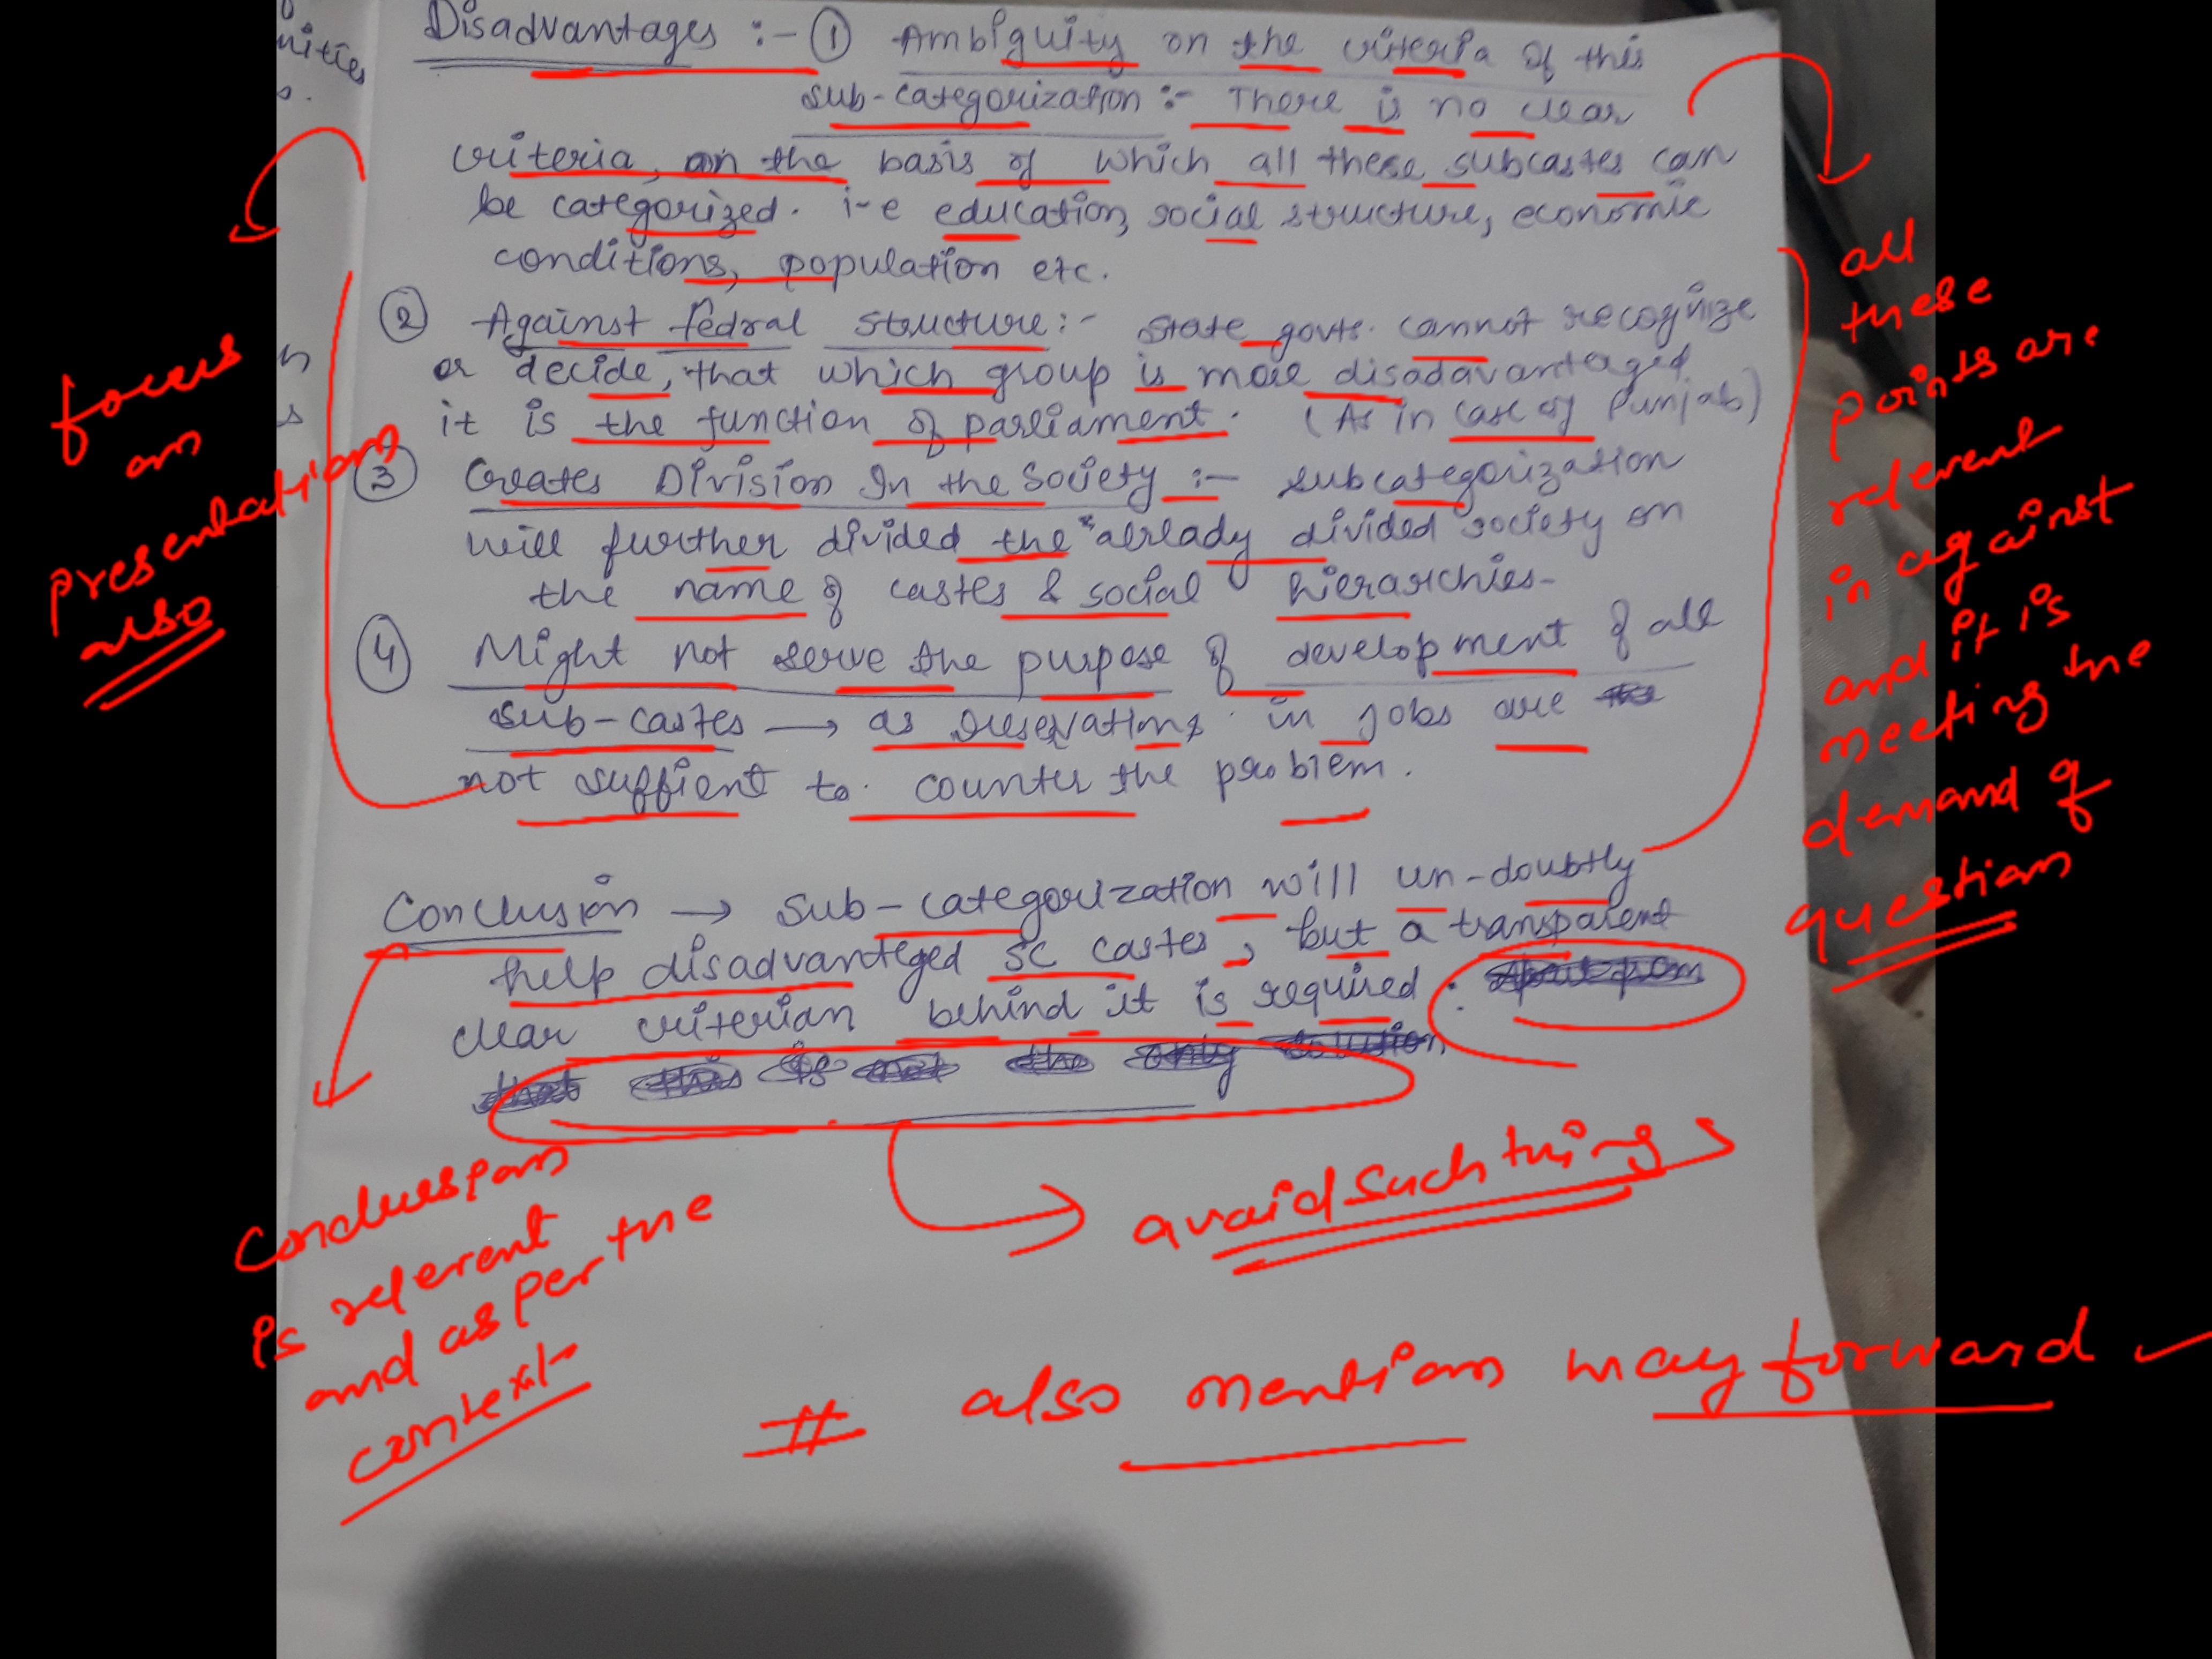 nities
s.
Disadvantages :- ① Ambiguity on the criteria of this
sub-categorization :- There is no clear
criteria, on the basis of which all these subcastes can
be categorized. i-e education, social structure, economic
conditions, population etc.
② Against fedral structure :- State govts. cannot recognize
or decide, that which group is more disadavantaged
it is the function of parliament. (As in case of Punjab)
③ Creates Division In the Society :- subcategorization
will further divided the already divided society on
the name of castes & social hierarchies-
④ Might not serve the purpose of development of all
sub-castes → as reservations in jobs are
not suffient to counter the problem.
Conclusion → Sub-categorization will un-doubtly
help disadvanteged SC castes, but a transparent
clear criterian behind it is required.
that this is not the only solution
focus
on
presentation
also
all
these
points are
relevent
in against
and it is
meeting the
demand of
question
Conclusion
is relevent
and as per the
context-
avoid such things
# also mention way forward